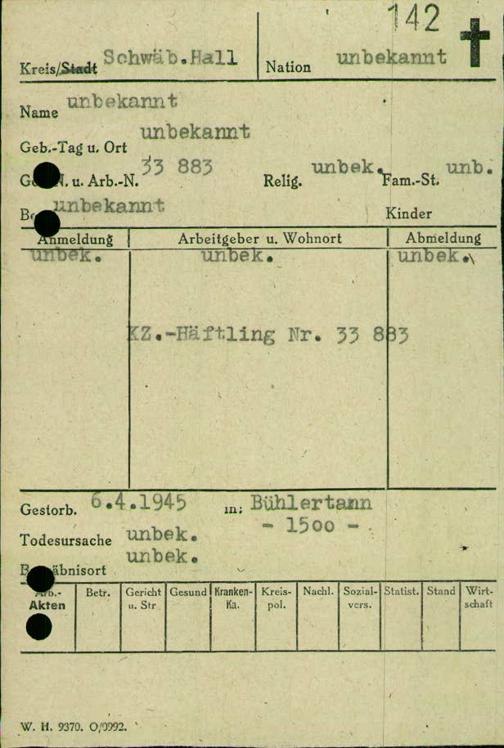 142
Kreis/Stadt Schwäb.Hall Nation unbekannt
Name unbekannt
Geb.-Tag u. Ort unbekannt
N. u. Arb.-N. 33 883 Relig. unbek. Fam.-St. unb.
unbekannt Kinder
Anmeldung Arbeitgeber u. Wohnort Abmeldung
unbek. unbek. unbek.
KZ.-Häftling Nr. 33 883
Gestorb. 6.4.1945 in: Bühlertann
- 1500 -
Todesursache unbek.
Begräbnisort unbek.
Arb.- Akten Betr. Gericht u. Str Gesund Kranken- Ka. Kreis- pol. Nachl. Sozial- vers. Statist. Stand Wirt- schaft
W. H. 9370. O/0992.